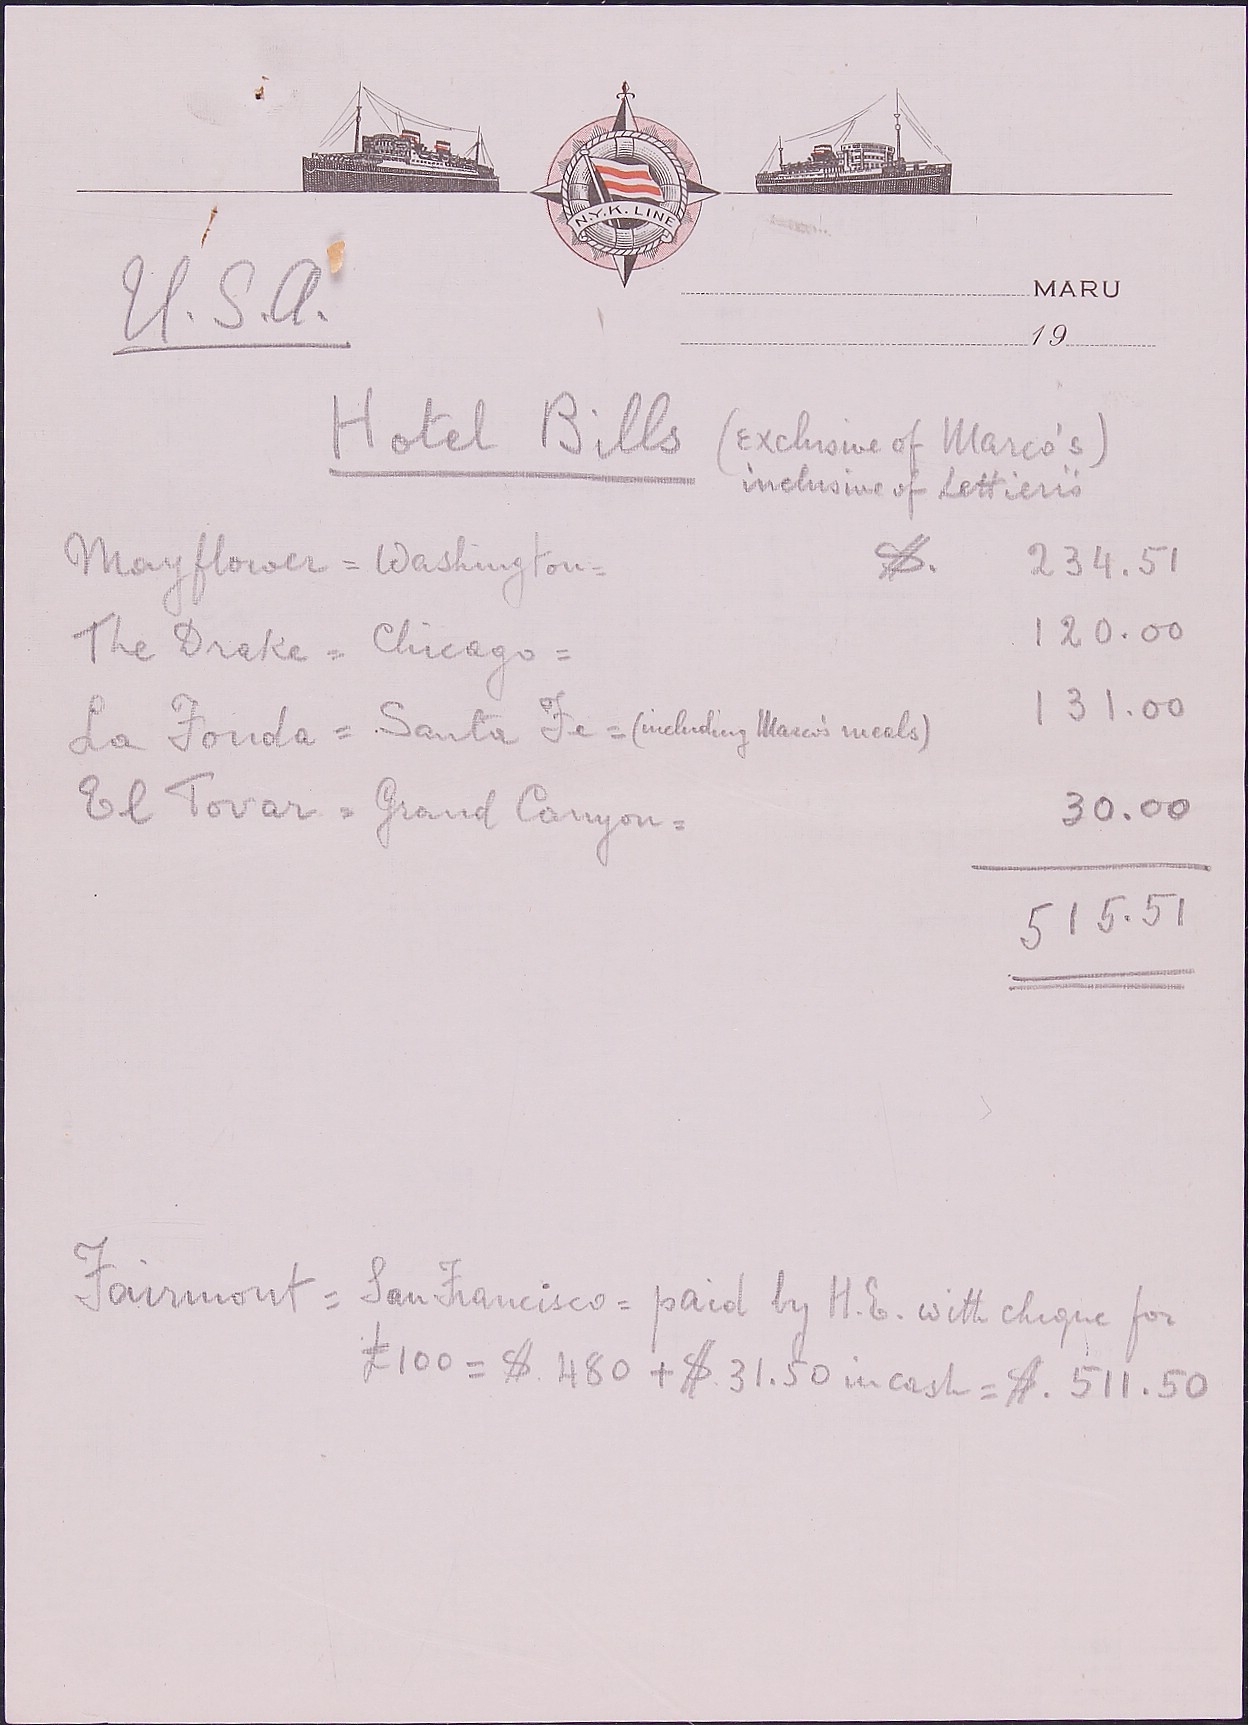 N.Y.K. LINE
MARU
19
U.S.A.
Hotel Bills (exclusive of Marco's)
inclusive of Lettieri's
Mayflower = Washington = $. 234.51
The Drake = Chicago = 120.00
La Fonda = Santa Fe = (including Marco's meals) 131.00
El Tovar = Grand Canyon = 30.00
515.51
Fairmont = San Francisco = paid by H.E. with cheque for
£100 = $. 480 + $. 31.50 in cash = $. 511.50